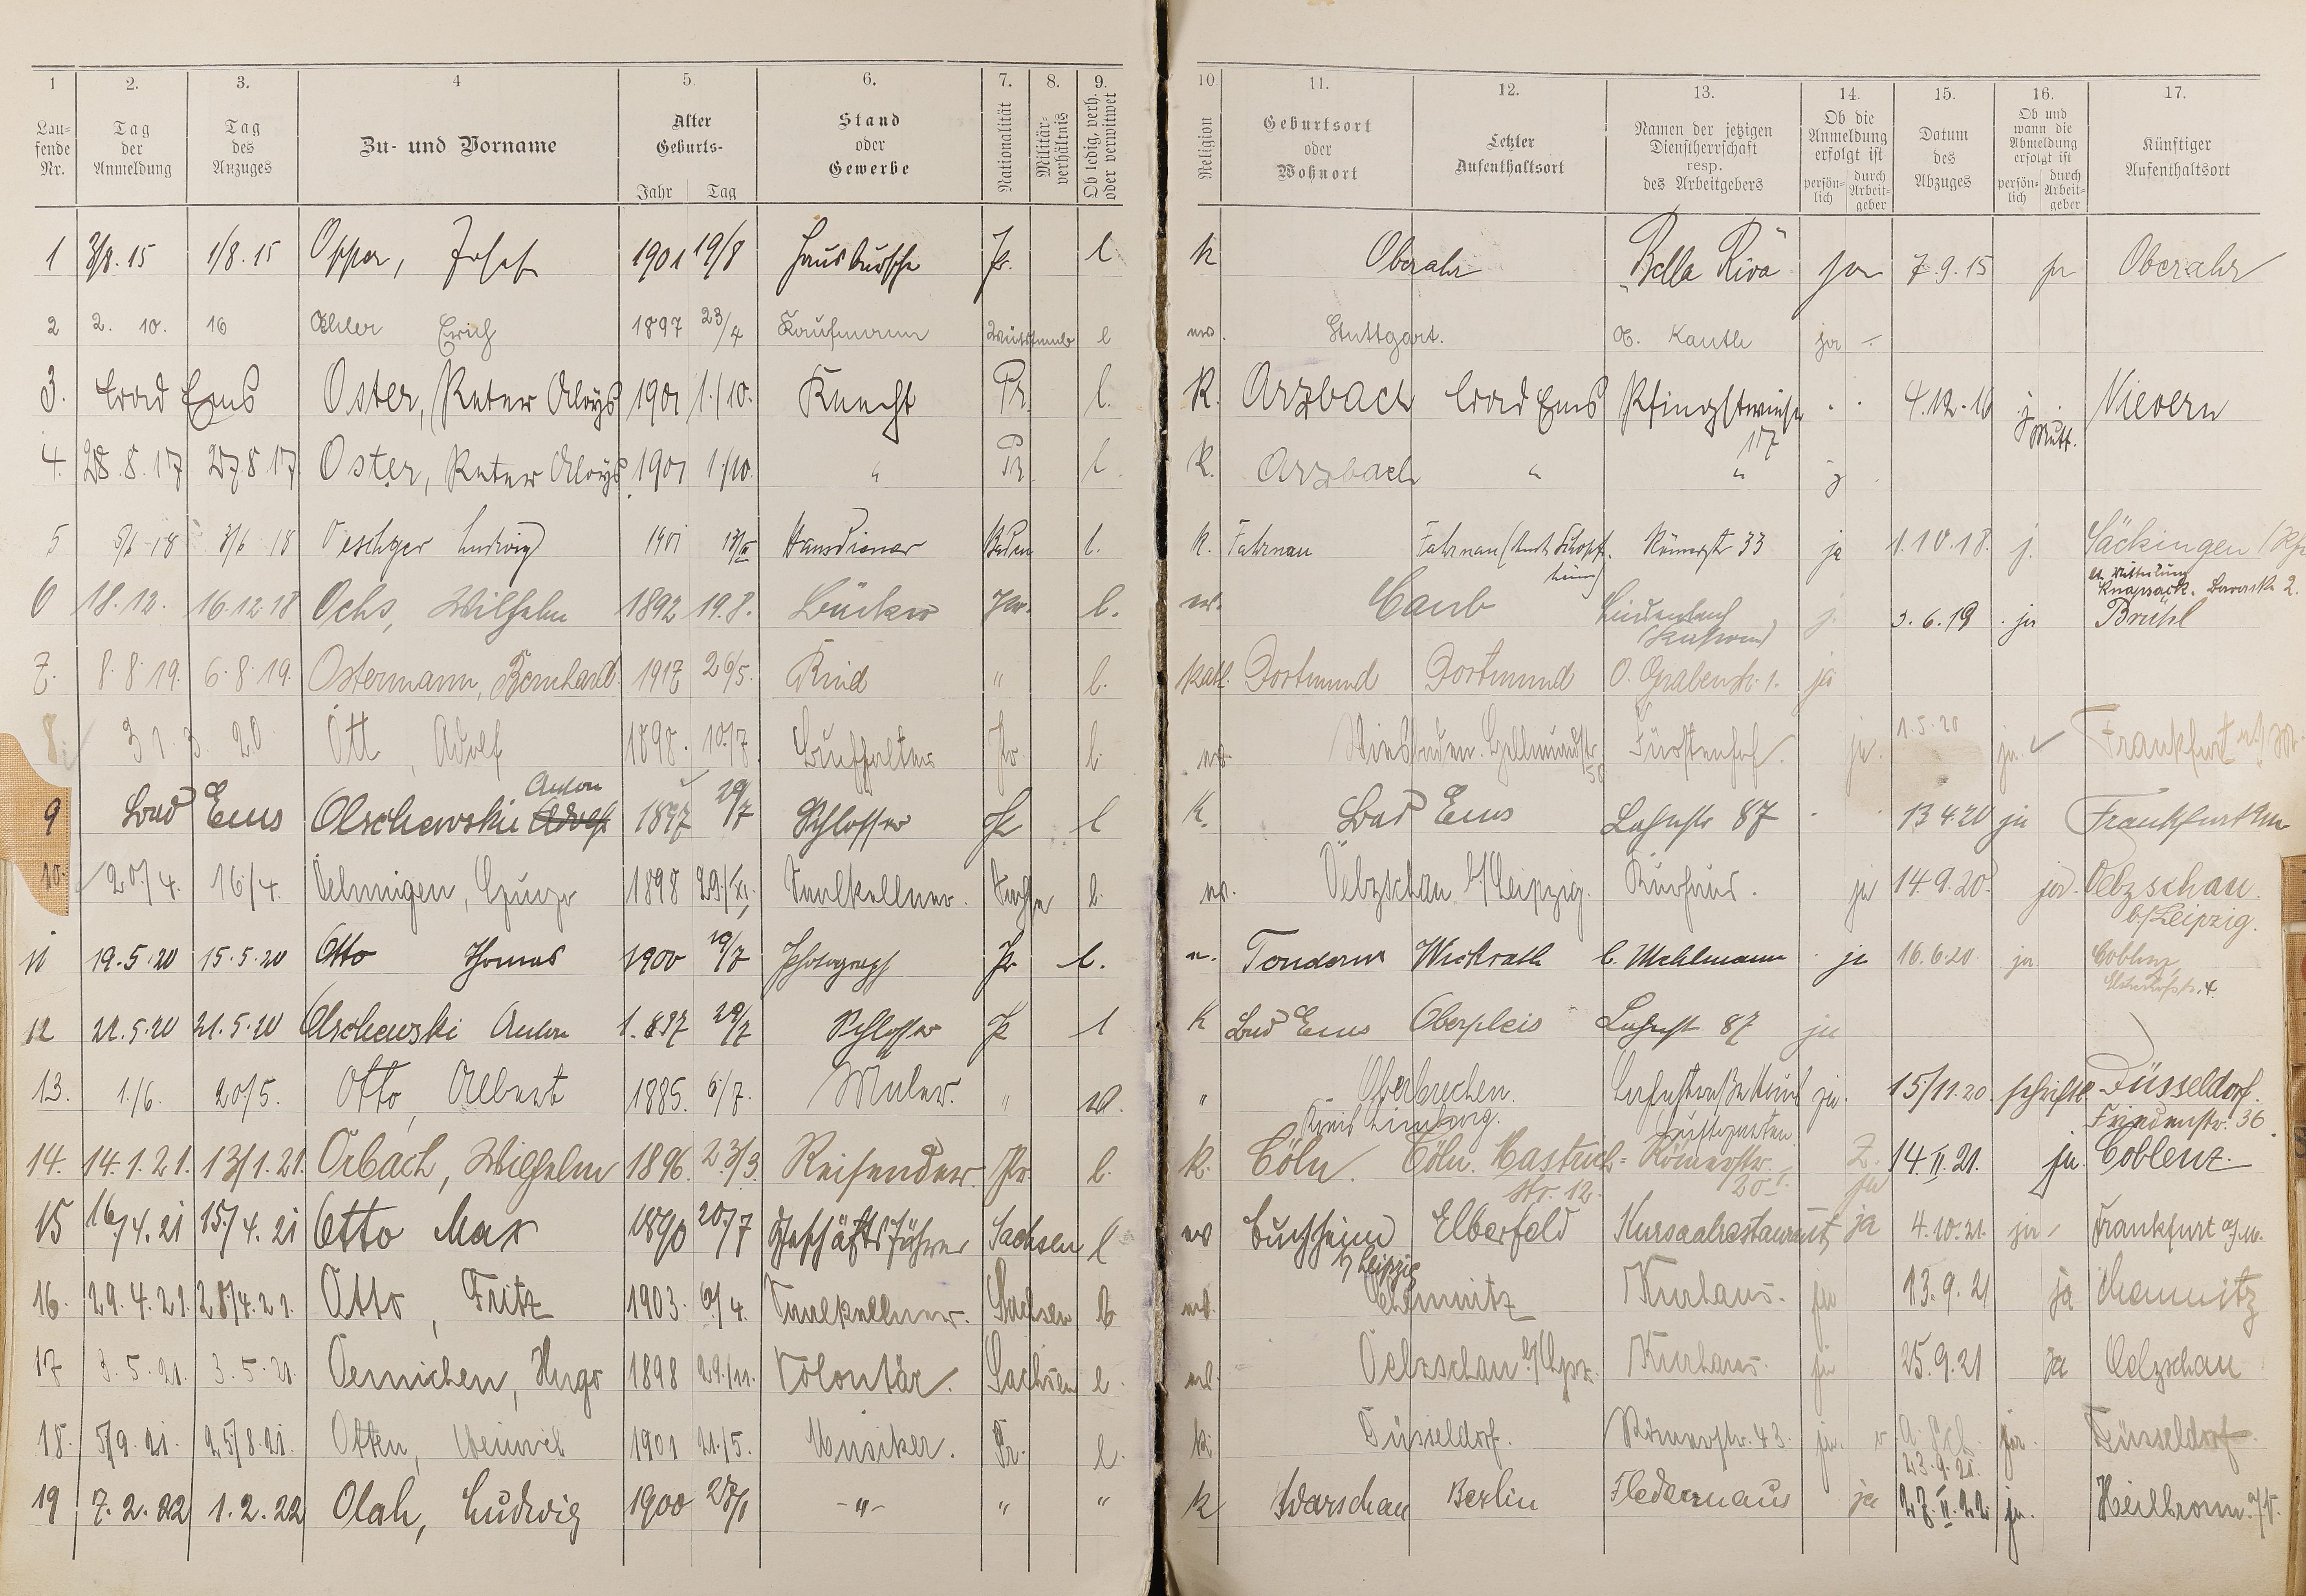 1 2. 3. 4 5. 6. 7. 8. 9. 10 11. 12. 13. 14. 15. 16. 17.
Lau-
fende
Nr.
Tag
der
Anmeldung
Tag
des
Anzuges
Zu- und Vorname
Alter
Geburts-
Jahr Tag
Stand
oder
Gewerbe
Nationalität
Militär-
verhältnis
Ob ledig, verh.
oder verwitwet
Religion
Geburtsort
oder
Wohnort
Letzter
Aufenthaltsort
Namen der jetzigen
Dienstherrschaft
resp.
des Arbeitgebers
Ob die
Anmeldung
erfolgt ist
persön-
lich
durch
Arbeit-
geber
Datum
des
Abzuges
Ob und
wann die
Abmeldung
erfolgt ist
persön-
lich
durch
Arbeit-
geber
Künftiger
Aufenthaltsort
1 3/8. 15 1/8. 15 Josef 1901 19/8 Hausbursche Pr. l k Oberahr Bella Riva ja 7.9.15 ja Oberahr
2 2. 10. 16 Erich 1897 23/4 Kaufmann l Stuttgart. ja
3. Bad Ems Oster, Peter Aloys 1901 1./10. Knecht Pr. l. K. Arzbach Bad Ems Pfingstwiese 4.12.16 j. Nievern
17 Mutt.
4. 28.8.17 27.8.17 Oster, Peter Aloys 1901 1./10. " Pr. l. K. Arzbach " " j
5 5/6 18 3/6 18 Oeschger Ludwig 1901 Hausdiener Baden l. K. Fahrnau Fahrnau (Amt Schopf- Römerstr 33 ja 1.10.18. j. Säckingen
heim)
lt. Mitteilung
Knapsack. Barack 2.
6 18.12. 16.12.18 Ochs, Wilhelm 1892 19.8. Bäcker Pr. l. ev. Caub Lindenbach j. 3.6.19 ja Brühl
7. 8.8.19. 6.8.19. Ostermann, Bernhard. 1917 26/5. Kind " l. kath. Dortmund Dortmund O. Grabenstr. 1. ja
8. 31.3.20 Ott, Adolf 1898. 10./7. Buchhalter Pr. l. ev. Wiesbaden. Hellmundstr. 50 Fürstenhof. ja. 1.5.20 ja. Frankfurt a/M.
Anton
9 Bad Ems Olschewski Adolf 1897 29/7 Schlosser Pr l K. Bad Ems Lahnstr 87 13 4.20 ja Frankfurt
10. 20./4. 16./4. 1898 29./XI. Saalkellner. Sachse l. ev. Oelzschau b/Leipzig. Kurhaus. ja 14.9.20. ja. Oelzschau.
b/Leipzig.
11 19.5.20 15.5.20 Otto Thomas 1900 Photograph Pr l. Tondern Wickrath C. Mehlmann ja 16.6.20. ja Coblenz
12 21.5.20 21.5.20 Olschewski Anton 1.897 29/7 Schlosser Pr l K Bad Ems Oberpleis Lahnst 87 ja
13. 1./6. 20/5. Otto, Albert 1885. 6/7. Maler. " " Oberbrechen. ja. 15/11.20. schriftl. Düsseldorf.
Kreis Limburg. Friedenstr. 36.
14. 14.1.21. 13/1.21. Orbach, Wilhelm 1896. 23/3. Reisender. Pr. l. k. Cöln. Cöln. Mastrich- Römerstr. 14.II.21. ja. Coblenz.
str. 12. 20 I. ja
15 16./4.21 15./4.21 Otto Max 1890 20./7 Geschäftsführer Sachsen l ev Buchheim Elberfeld Kursaalrestaurant ja 4.10.21. ja Frankfurt a/M.
b/Leipzig
16. 29.4.21. 28/4.21. Otto, Fritz 1903. 6/4. Saalkellner. Sachsen l. Chemnitz Kurhaus. ja 13.9.21 ja Chemnitz
17 3.5.21. 3.5.21. Oemichen, Hugo 1898 29./11. Volontär. Sachsen l. Oelzschau b/Lpz. Kurhaus. ja 25.9.21 ja Oelzschau
18. 5/9.21. 25/8.21. Otten, 1901 21./5. Musiker. Pr. l. k. Düsseldorf. Römerstr. 43. ja. ja. Düsseldorf.
23.9.21.
19 7.2.22 1.2.22 Olah, Ludwig 1900 -"- " " k Warschau Berlin Fledermaus ja 27.II.22. ja. Heilbronn a/N.